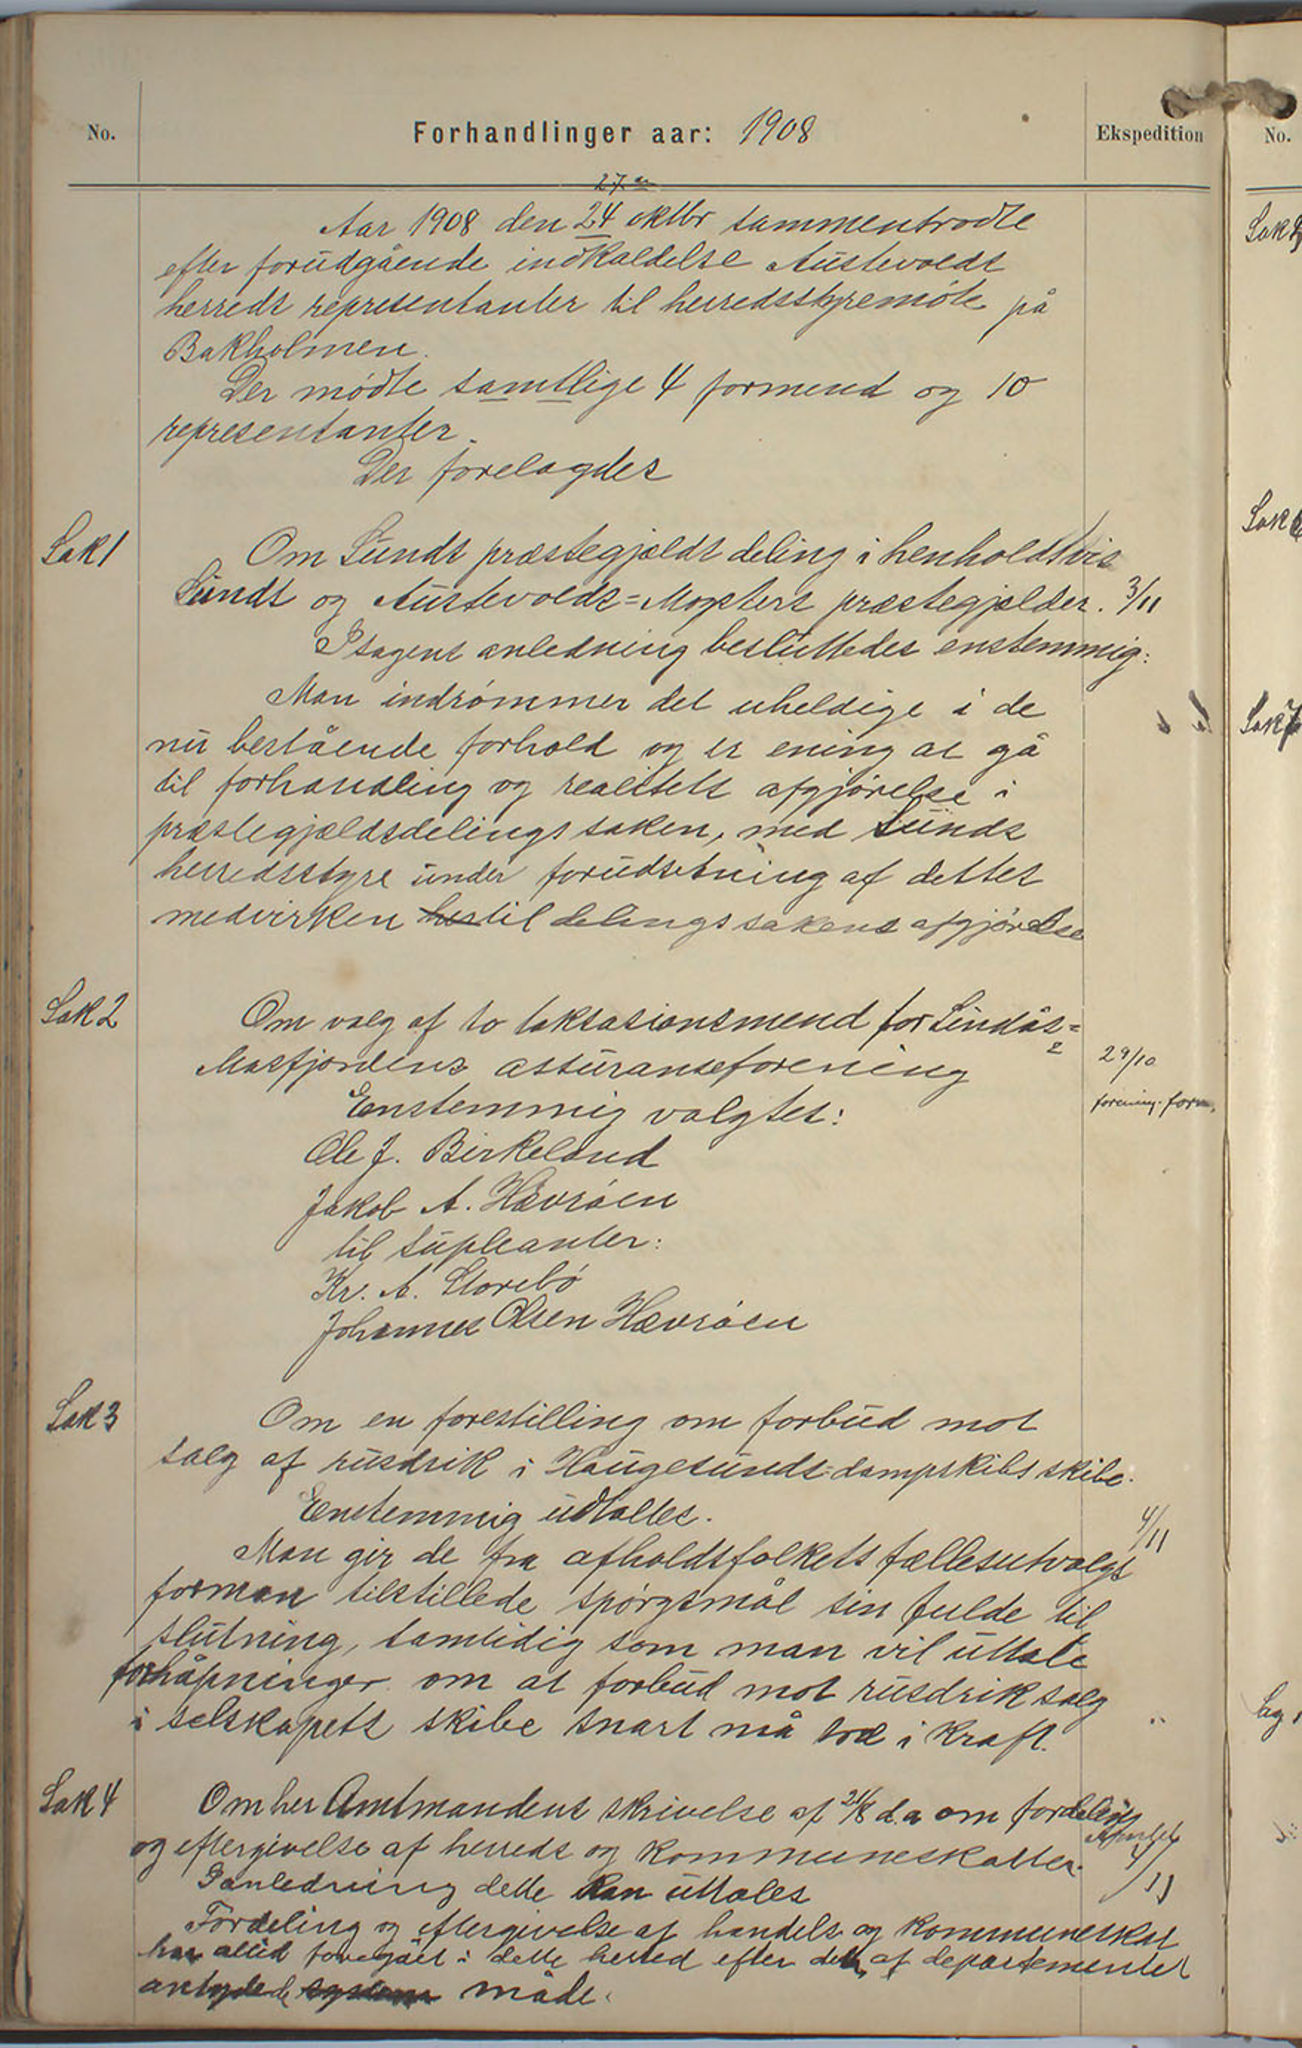 No.
Forhandlinger aar: 1908
Ekspedition
No.
27.
Aar 1908 den 24 oktbr sammentrodte
efter forudgående indkaldelse Austevolds
herreds representanter til herredsstyremöte på
Bakholmen.
Der mødte samtlige 4 formend og 10
representanter.
Der forelagdes
Sak 1
Om Sunds præstegjælds deling i henholdsvis
Sunds og Austevolds=Mögsters præstegjælder. 3/11
I sagens anledning besluttedes enstemmig:
Man indrömmer det uheldige i de
nu bestående forhold og er ening at gå
til forhandling og realitets afgjörelse i
præstegjældsdelings saken, med Sunds
herredsstyre under forudsetning af dettes
medvirken hos til delings sakens afgjörelse
Sak 2
Om valg af to taksasionsmend for Lindås=
Masfjordens assuranseforening
29/10
forening. form.
Enstemmig valgtes:
Ole J. Birkeland
Jakob A. Hævröen
til supleanter:
Kr. A. Storebö
Johannes Olsen Hævröen
Sak 3
Om en forestilling om forbud mot
salg af rusdrik i Haugesunds dampskibs skibe.
Enstemmig udtaltes.
4/11
Man gir de fra afholdsfolkets fællesutvalgs
forman tilstillede spörgsmål sin fulde til
slutning, samtidig som man vil uttale
forhåpninger om at forbud mot rusdrik salg
i selskapets skibe snart må træ i kraft.
Sak 4
Om her Amtmandens skrivelse af 21/8 d.a om fordeling
og eftergivelse af herreds og kommuneskatter.
4/11
I anledning dette kan uttales
Fordeling og eftergivelse af handels og kommuneskat
har altid foregået i dette herred efter den af departementet
antydede system måde.
Sak
Sak
Sak 7